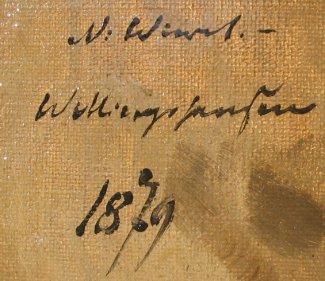 N: Wiwel.–
Willingshausen
1879